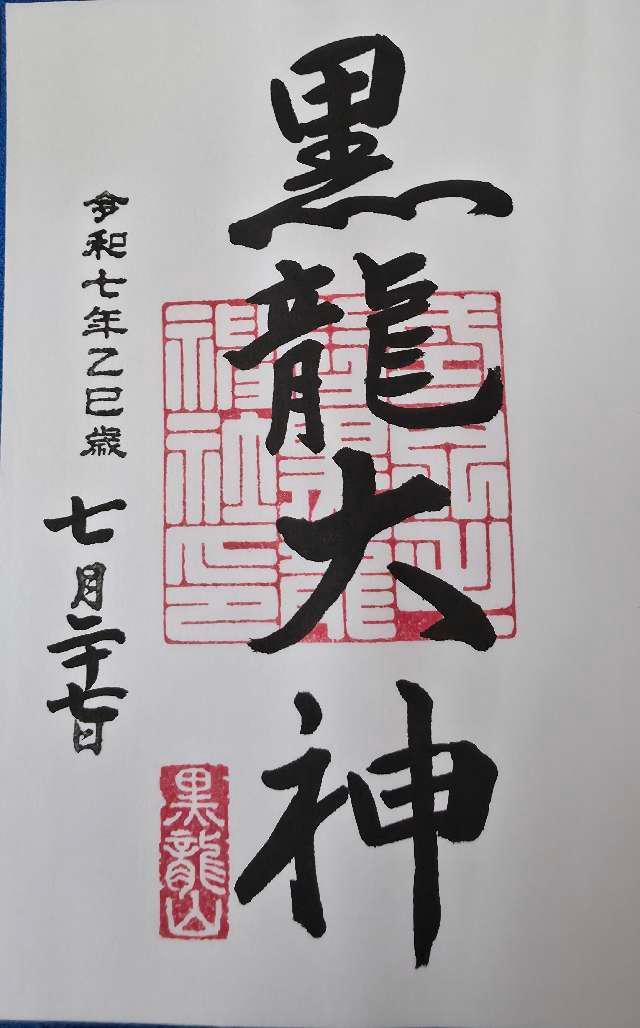 黒龍大神
令和七年乙巳歳
七月二十七日
黒龍山